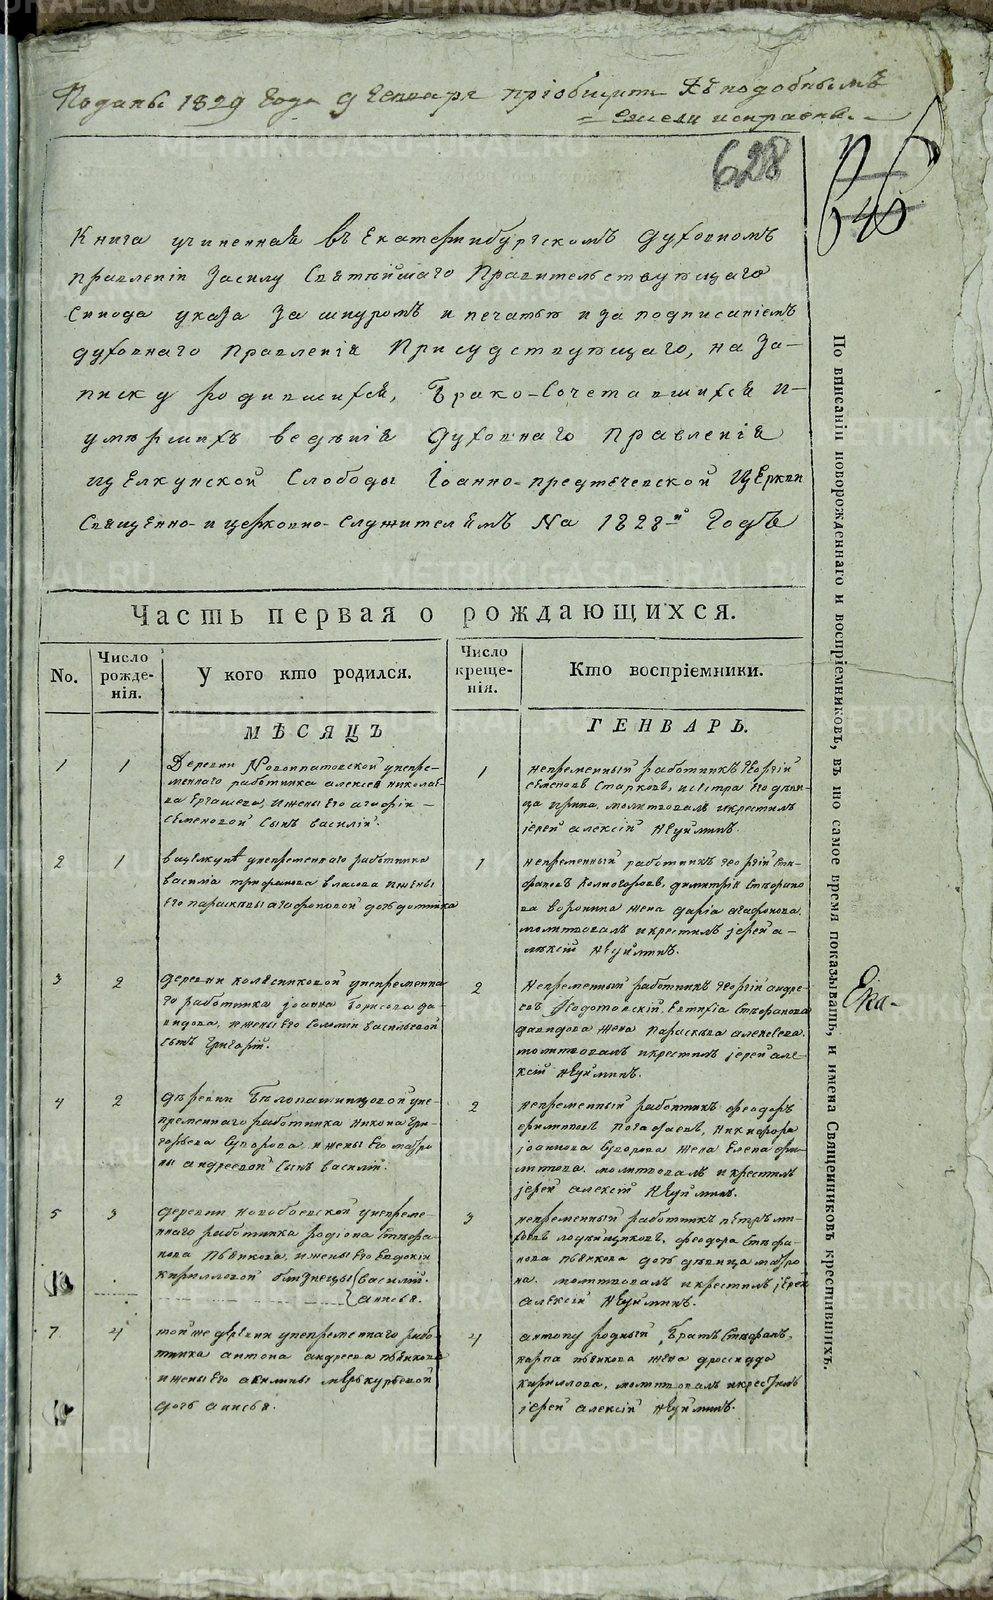 Поданы 1829 года 9 Генваря пріобщить къ подобнымъ
628
Книга учиненная въ Екатеринбургскомъ духовномъ
правленіи засилу Святѣйшаго Правительствующаго
Синода указа за шнуромъ и печатью и за подписаніемъ
духовнаго Правленія Присудствующаго, на за-
писку родившихся, Брако-Сочетавшихся и
умѣршихъ веденія Духовнаго Правленія
Щелкунской Слободы Іоанно-предтечевской церкви
Священно- и церковно-Служителямъ На 1828й Годъ
Часть первая о рождающихся.
No.
Число рожде- нія.
У кого кто родился.
Число креще- нія.
Кто воспріемники.
МѢСЯЦЪ
ГЕНВАРЬ.
1 1 Деревни Новоипатовской унепре-
меннаго работника алексея николае-
ва Ергашева, и жены его агафіи
Семеновой Сынъ василій.
1 непременный работникъ георгій
семеновъ Старковъ, и сестра его дѣви-
ца ирина, молитвовалъ и крестилъ
іерей алексій Неуйминъ.
2 1 вщелкунѣ унепременнаго работника
василіа трифонова власова и жены
его параскевы агафоновой дочь домника
1 непременный работникъ георгій Сте-
фановъ Колногоровъ, димитріа Стефано-
ва воронина жена дарія агафонова.
молитвовалъ и крестилъ іерей а-
лексій Неуйминъ.
3 2 деревни колясниковой унепременна-
го работника іоанна борисова да-
видова, и жены его Соломіи васильевой
сынъ григорій.
2 Непременный работникъ георгій андре-
евъ Евтихіа Стефанова
давидова жена параскева алексеева.
молитвовалъ и крестилъ іерей але-
ксій Неуйминъ.
4 2 деревни Белопашинцовой уне-
пременнаго работника никона гри-
горьева Суворова, и жены его матро-
ны андреевой Сынъ василій.
2 Непременный работникъ феодоръ
филиповъ никифора
іоаннова Суворова жена Елена фи-
липова. молитвовалъ и крестилъ
іерей алексій Неуйминъ.
5 3 деревни новобоевской унепреме-
ннаго работника родіона Стефа-
нова пьянкова, и жены его Евдокіи
кирилловой близнецы василій.
анисья.
3 непременный работникъ петръ
феодора Стефа-
нова пьянкова дочь девица матро-
на. молитвовалъ и крестилъ іерей
алексій Неуйминъ.
7 4 той же деревни унепременнаго рабо-
тника антона андреева пьянкова
и жены его акилины меркурьевой
дочь анисья.
4 антону родный братъ Стефанъ,
карпа пьянкова жена дросида
кириллова, молитвовалъ и крестилъ
іерей алексій Неуйминъ.
По вписаніи новорожденнаго и воспріемниковъ, въ то самое время показывать, и имена Священниковъ крестившихъ.
Ека-
METRIKI.GASO-URAL.RU